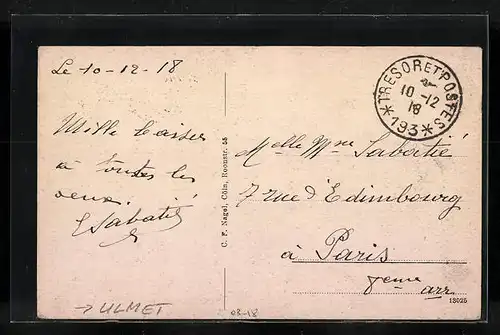 Le 10-12-18
Mille baisers
à toutes les
deux.
E Sabatié
TRESOR ET POSTES
10 -12
18
*193*
C. F. Nagel, Cöln, Roonstr. 55
Melle Mme Sabatié
7 rue d'Edimbourg
à Paris
8eme
arr.
13025
→ ULMET
08-18